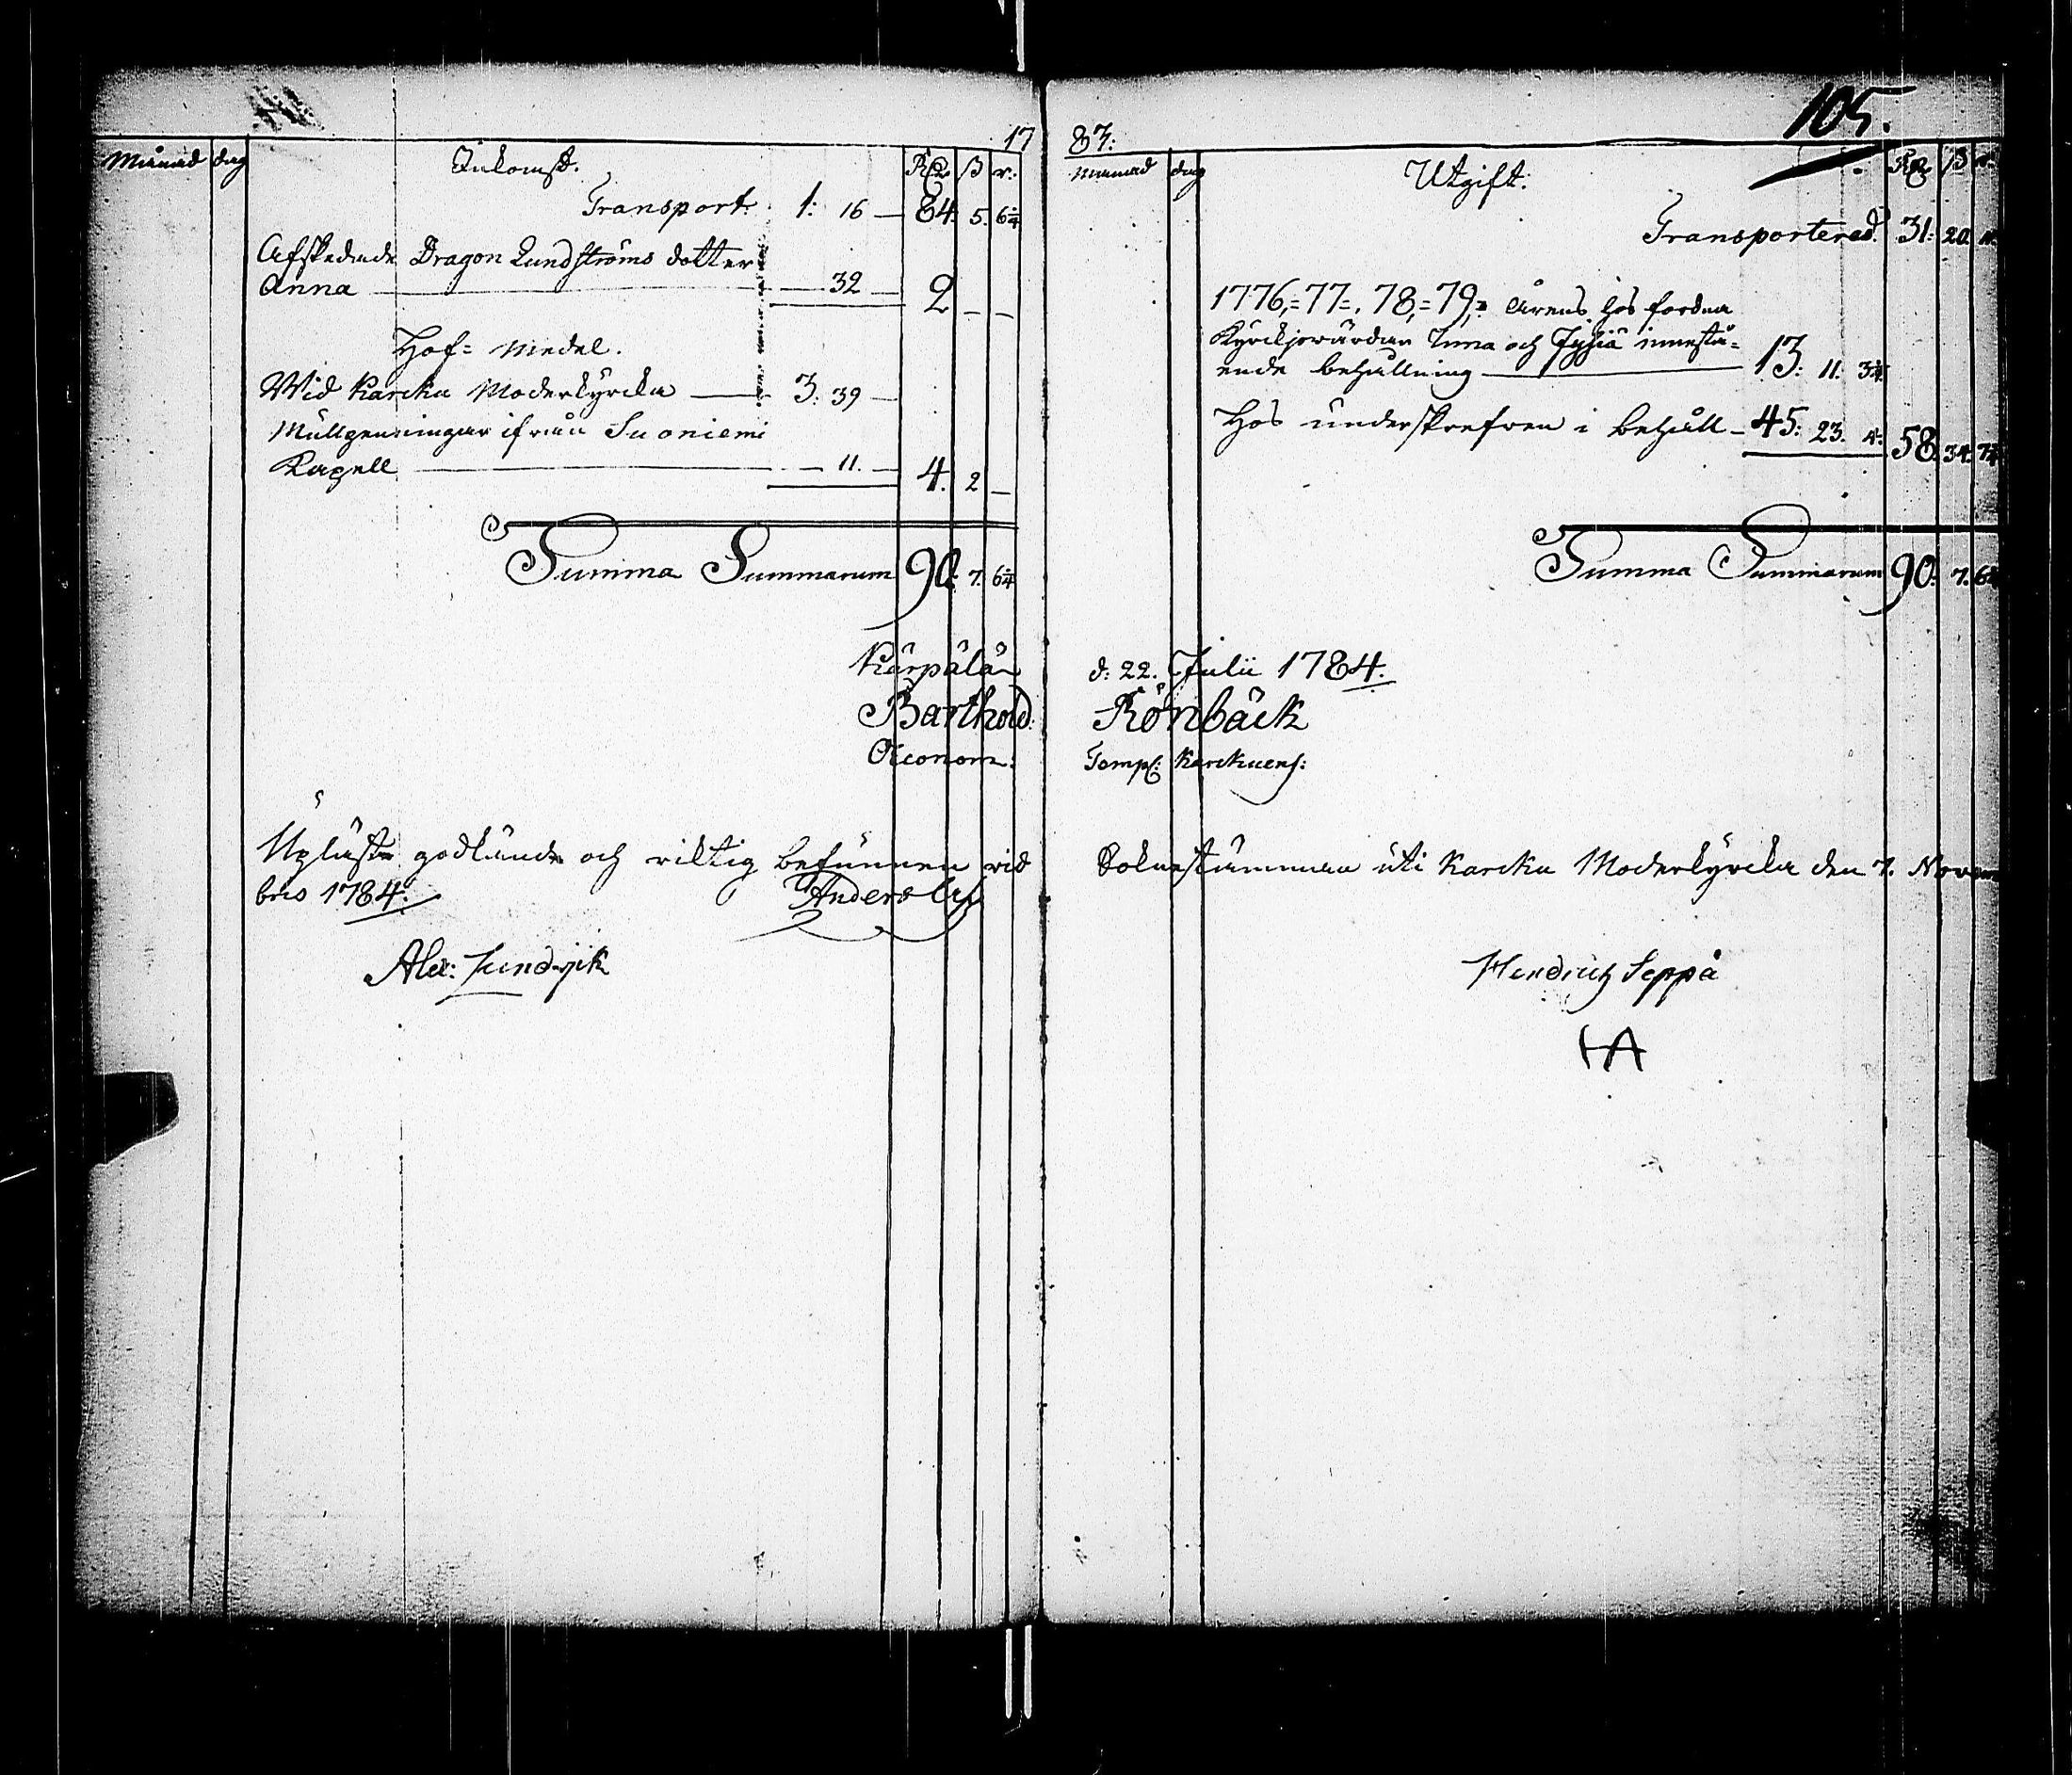 105.
17 83:
Månad dag Inkomst. Rd ß r:
Transport. 1: 16 — 84. 5. 6 1/4
Afskedade Dragon Lundströms dotter
Anna — 32 — 2 — —
Håf= Medel.
Wid Karcku Moderkyrcka — 3. 39 —
Mullpenningar ifrån Suoniemi
Kapell — 11. — 4. 2 —
Summa Summarum 90. 7. 6 1/4
Månad dag Utgift. Rd ß r.
Transporterad. 31: 20.
1776,=77=, 78,=79,= årens hos fordna
Kyrckjowärdar och innestå=
ende behållning — 13. 11. 3 1/4
Hos underskrefven i behåll — 45: 23. 4. 58. 34. 7 1/4
Summa Summarum 90: 7. 6 1/4
Kärpälä d: 22. Julii 1784.
Barthold: Rönbäck
Oeconom: Templ: Karckuens:
Upläst godkänd och riktig befunnen vid Soknestämman uti Karcku Moderkyrcka den 7. Novem
bris 1784. Anders
Alex: Hendrich Seppä
HA